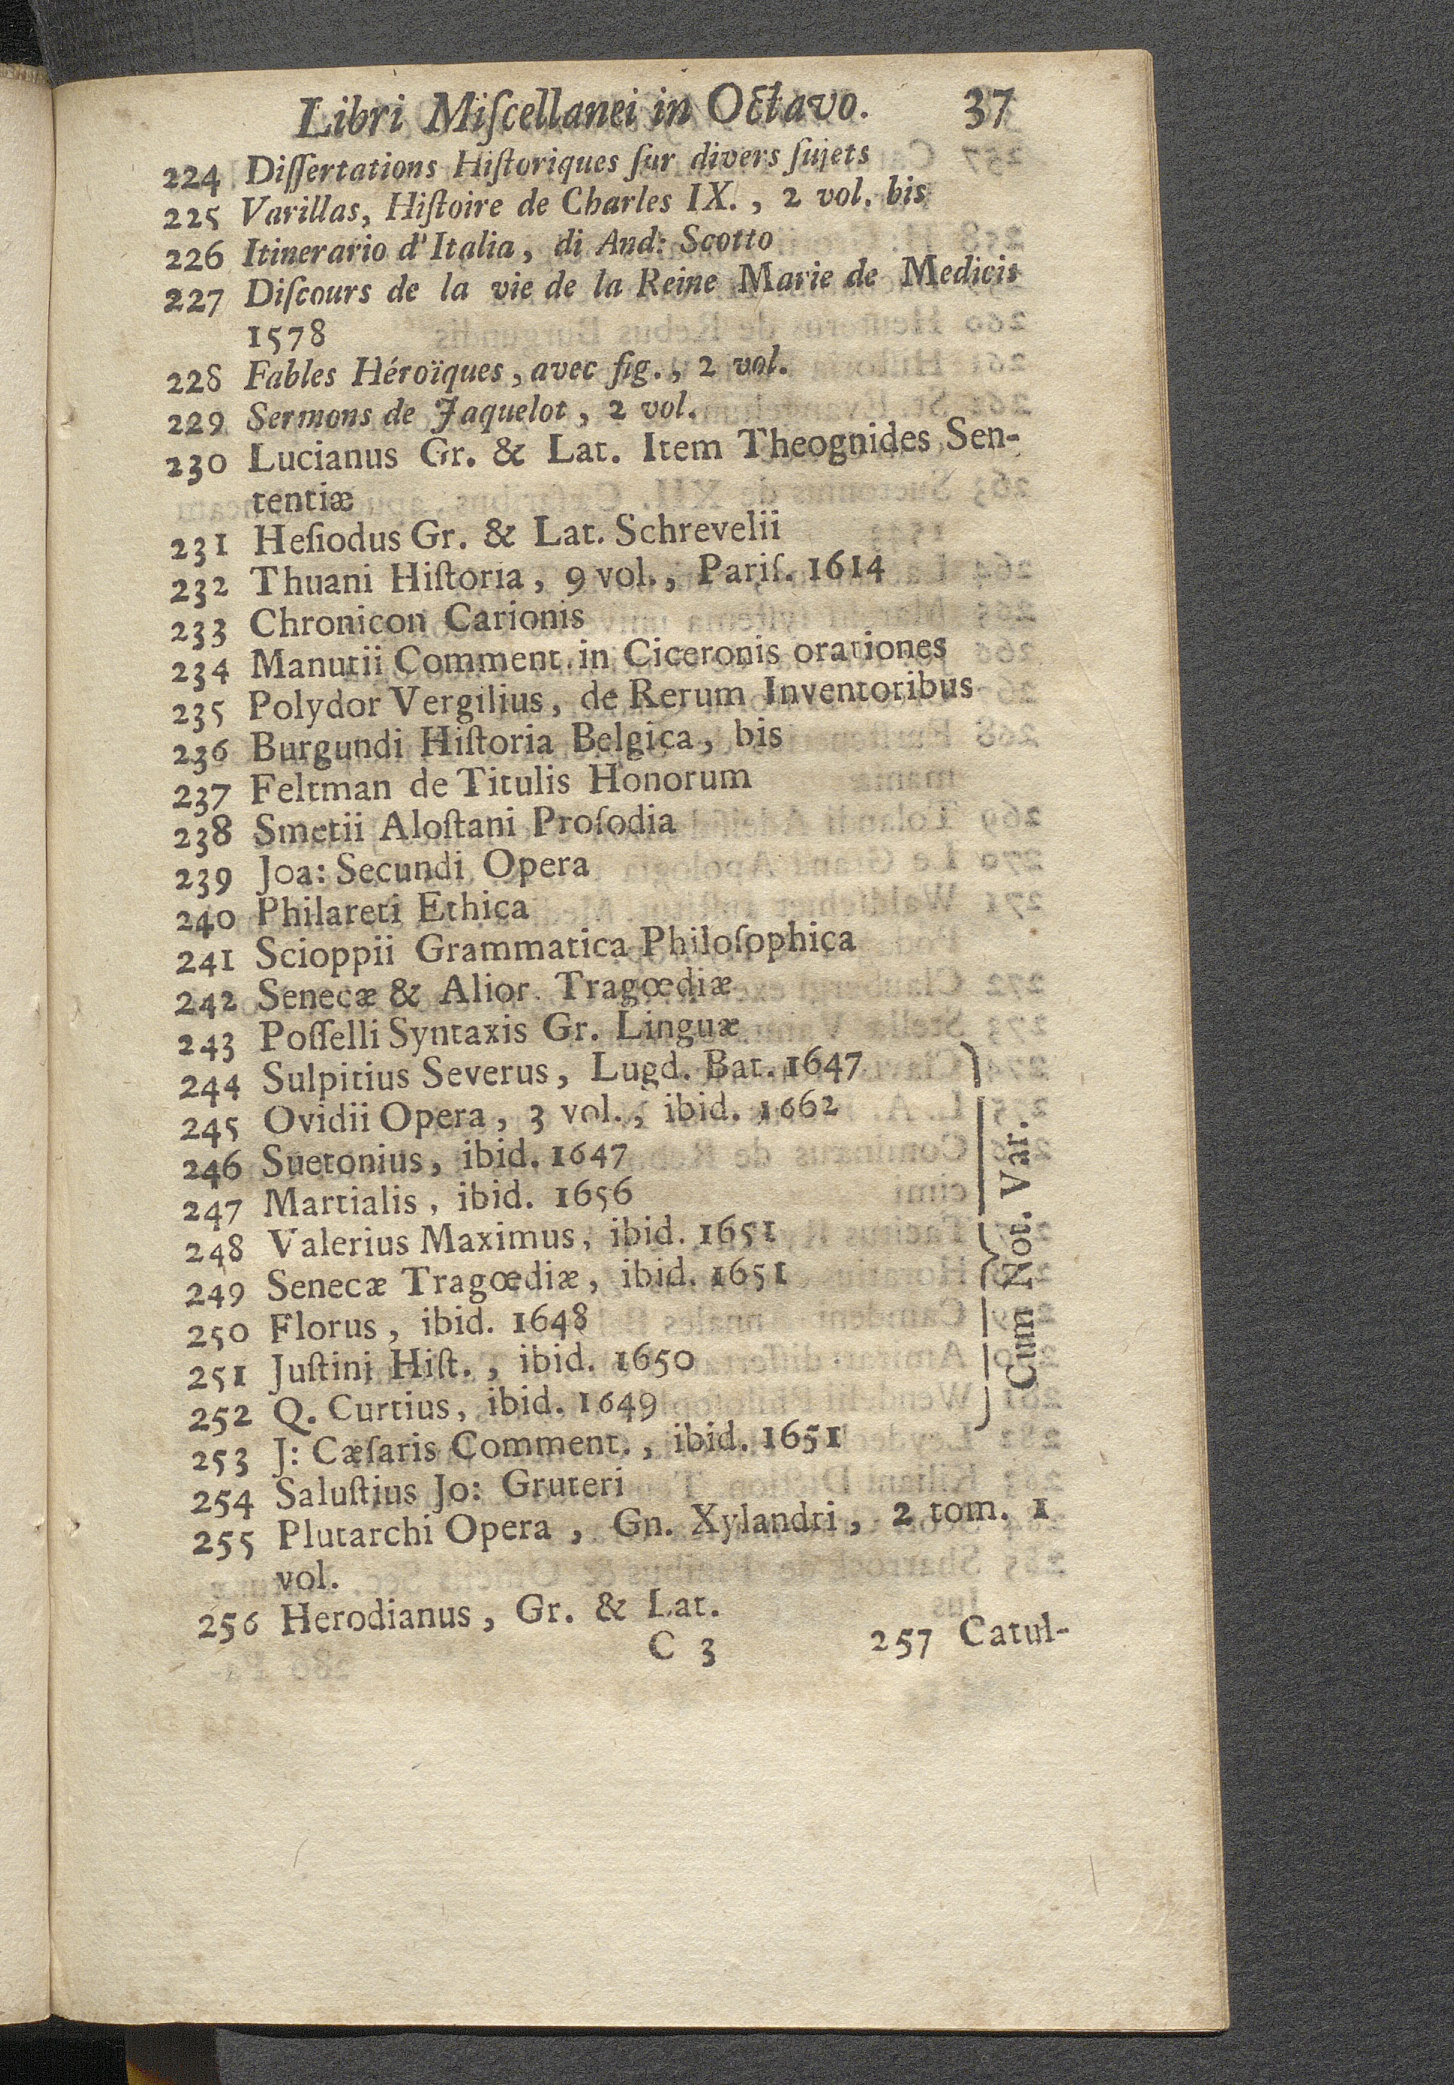 Libri Miſcellanei in Octavo. 37
224 Diſſertations Hiſtoriques ſur divers ſujets
225 Varillas, Hiſtoire de Charles IX., 2 vol. bis
226 Itinerario d'Italia, di And: Scotto
227 Diſcours de la vie de la Reine Marie de Medicis
1578
228 Fables Héroïques, avec fig., 2 vol.
229 Sermons de Jaquelot, 2 vol.
230 Lucianus Gr. & Lat. Item Theognides Sen-
tentiæ
231 Heſiodus Gr. & Lat. Schrevelii
232 Thuani Hiſtoria, 9 vol., Pariſ. 1614
233 Chronicon Carionis
234 Manutii Comment. in Ciceronis orationes
235 Polydor Vergilius, de Rerum Inventoribus
236 Burgundi Hiſtoria Belgica, bis
237 Feltman de Titulis Honorum
238 Smetii Aloſtani Proſodia
239 Joa: Secundi Opera
240 Philareti Ethica
241 Scioppii Grammatica Philoſophica
242 Senecæ & Alior. Tragœdiæ
243 Poſſelli Syntaxis Gr. Linguæ
244 Sulpitius Severus, Lugd. Bat. 1647
245 Ovidii Opera, 3 vol., ibid. 1662
246 Suetonius, ibid. 1647
247 Martialis, ibid. 1656
248 Valerius Maximus, ibid. 1651
249 Senecæ Tragœdiæ, ibid. 1651
250 Florus, ibid. 1648
251 Juſtini Hiſt., ibid. 1650
252 Q. Curtius, ibid. 1649
253 J: Cæſaris Comment., ibid. 1651
Cum Not. Var.
254 Saluſtius Jo: Gruteri
255 Plutarchi Opera, Gn. Xylandri, 2 tom. 1
vol.
256 Herodianus, Gr. & Lat.
C 3 257 Catul-